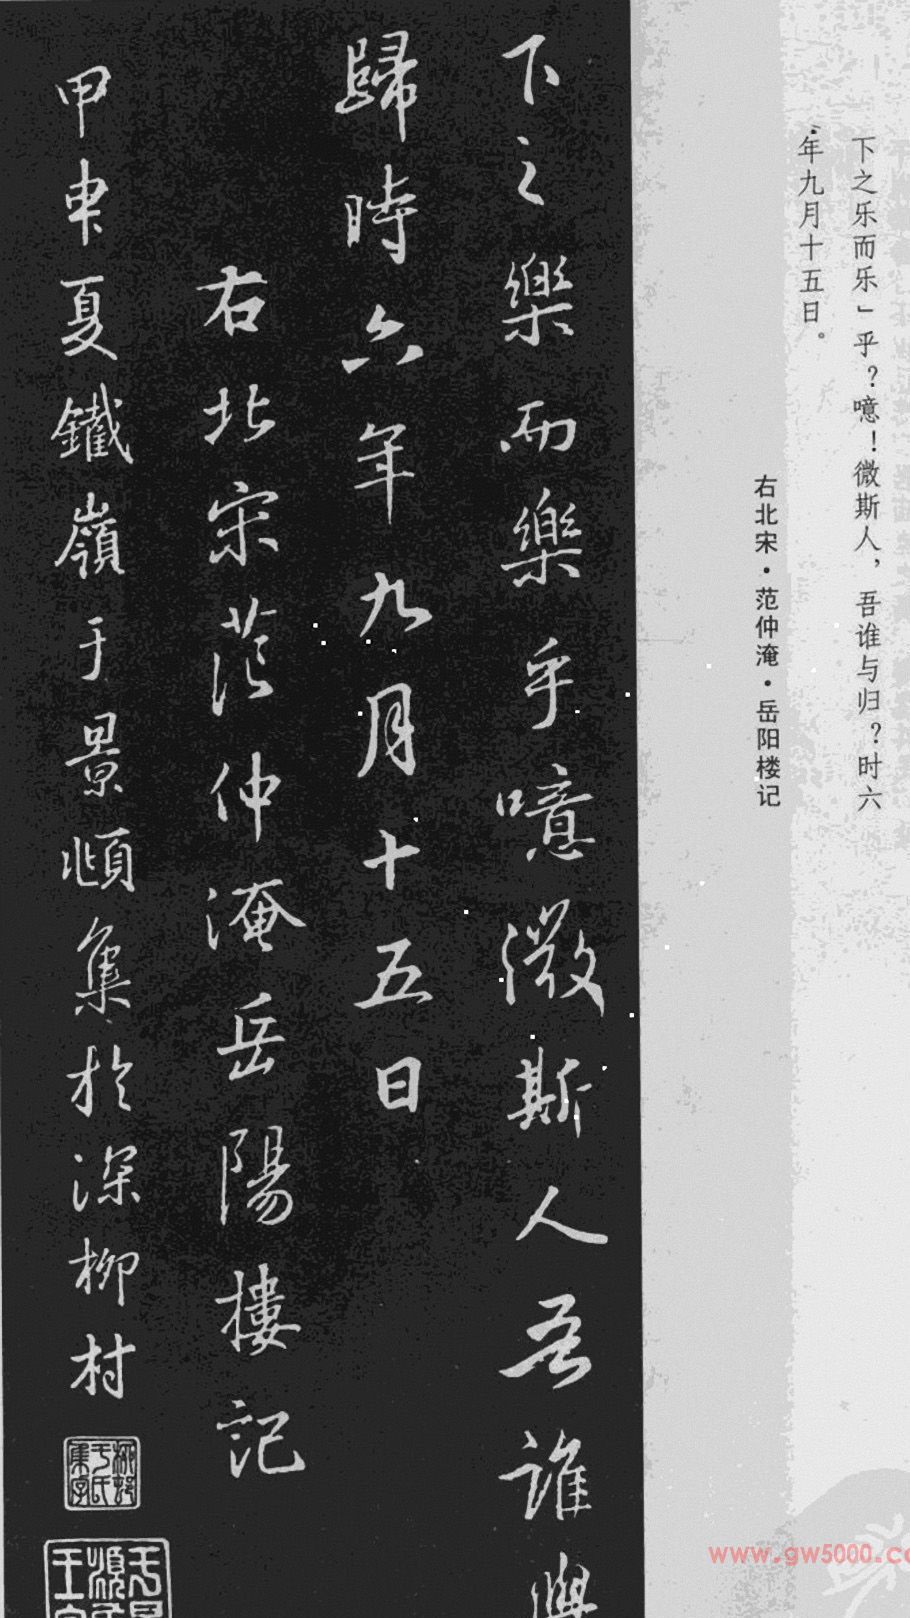 下之乐而乐」乎？噫！微斯人，吾谁与归？时六
年九月十五日。
右北宋·范仲淹·岳阳楼记
下之樂而樂乎噫微斯人吾誰與
歸時六年九月十五日
右北宋范仲淹岳陽樓記
甲申夏鐵嶺于景頫集於深柳村
www.gw5000.co